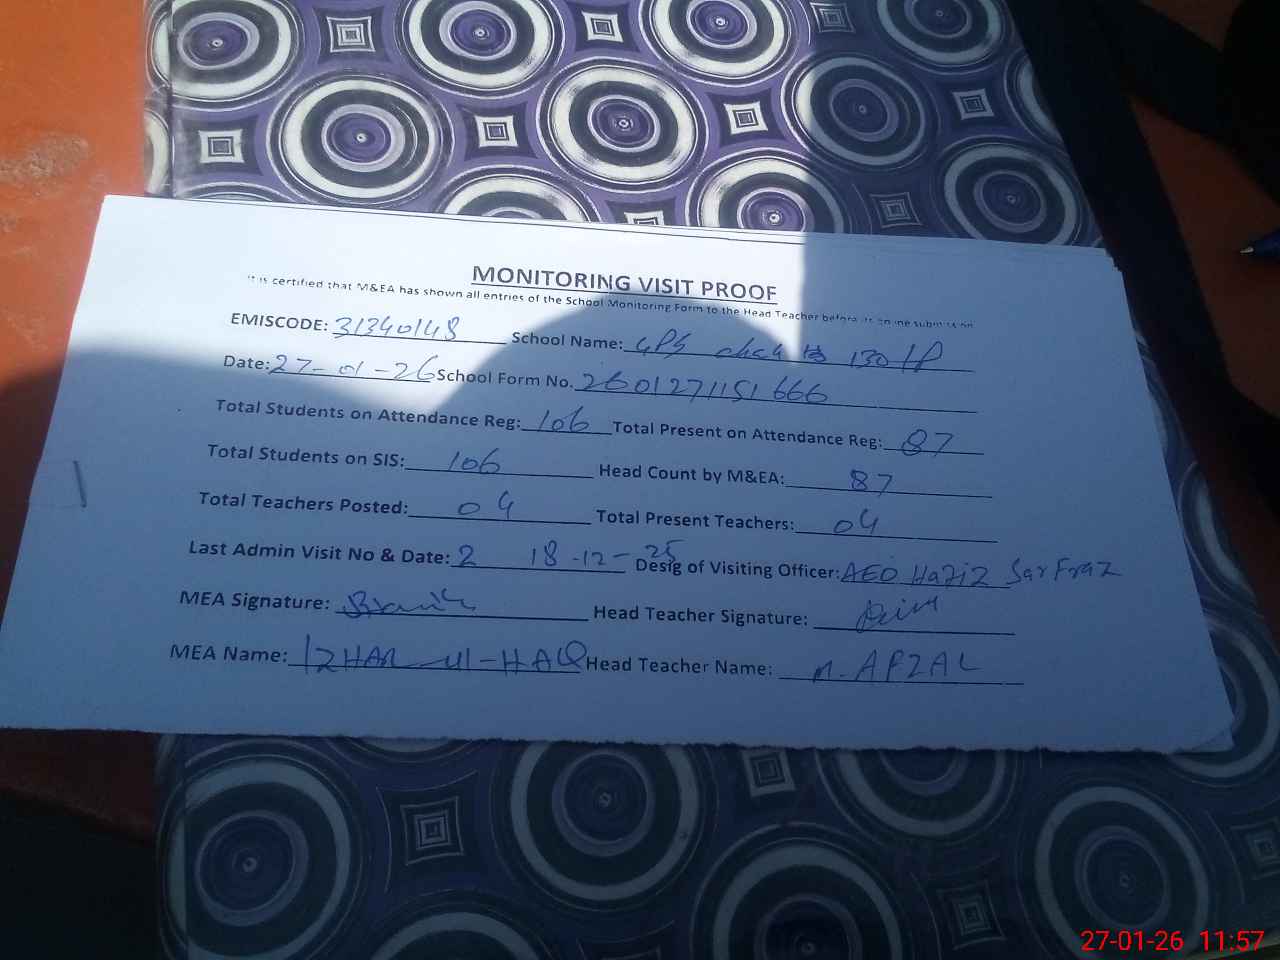 MONITORING VISIT PROOF
It is certified that M&EA has shown all entries of the School Monitoring Form to the Head Teacher before its online submission
EMISCODE: 31340148 School Name: GPS chak 130 1P
Date: 27-01-26 School Form No. 2601271151666
Total Students on Attendance Reg: 106 Total Present on Attendance Reg: 87
Total Students on SIS: 106 Head Count by M&EA: 87
Total Teachers Posted: 04 Total Present Teachers: 04
Last Admin Visit No & Date: 2 18-12-25 Desig of Visiting Officer: AEO Hafiz Sarfraz
MEA Signature: Head Teacher Signature:
MEA Name: IZHAR ul-HAQ Head Teacher Name: M. AFZAL
27-01-26 11:57